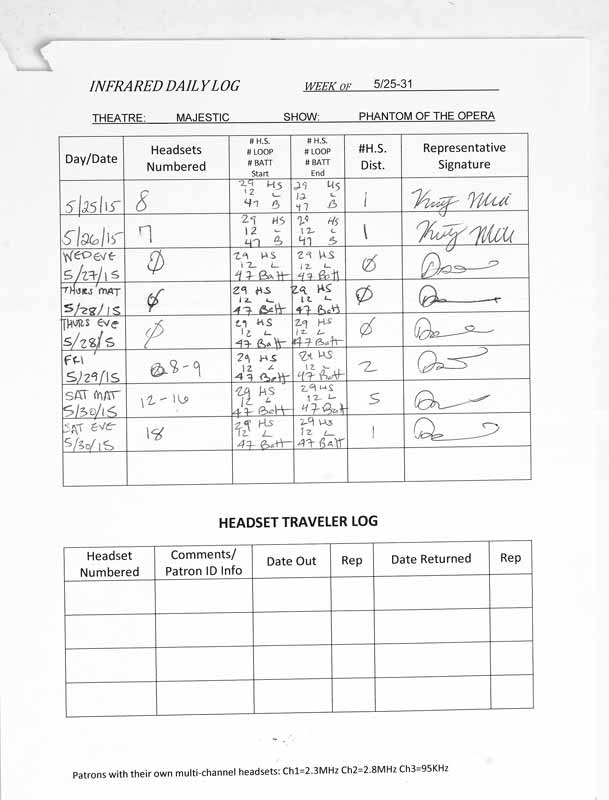 INFRARED DAILY LOG WEEK OF 5/25-31
THEATRE: MAJESTIC SHOW: PHANTOM OF THE OPERA
Day/Date Headsets Numbered # H.S. # LOOP # BATT Start # H.S. # LOOP # BATT End #H.S. Dist. Representative Signature
5/25/15 8 29 HS 12 L 47 B 29 HS 12 L 47 B 1
5/26/15 7 29 HS 12 L 47 B 29 HS 12 L 47 B 1
WED EVE 5/27/15 Ø 29 HS 12 L 47 Batt 29 HS 12 L 47 Batt Ø
THURS MAT 5/28/15 Ø 29 HS 12 L 47 Batt 29 HS 12 L 47 Batt Ø
THURS EVE 5/28/15 Ø 29 HS 12 L 47 Batt 29 HS 12 L 47 Batt Ø
FRI 5/29/15 8-9 29 HS 12 L 47 Batt 29 HS 12 L 47 Batt 2
SAT MAT 5/30/15 12-16 29 HS 12 L 47 Batt 29 HS 12 L 47 Batt 5
SAT EVE 5/30/15 18 29 HS 12 L 47 Batt 29 HS 12 L 47 Batt 1
HEADSET TRAVELER LOG
Headset Numbered Comments/ Patron ID Info Date Out Rep Date Returned Rep
Patrons with their own multi-channel headsets: Ch1=2.3MHz Ch2=2.8MHz Ch3=95KHz